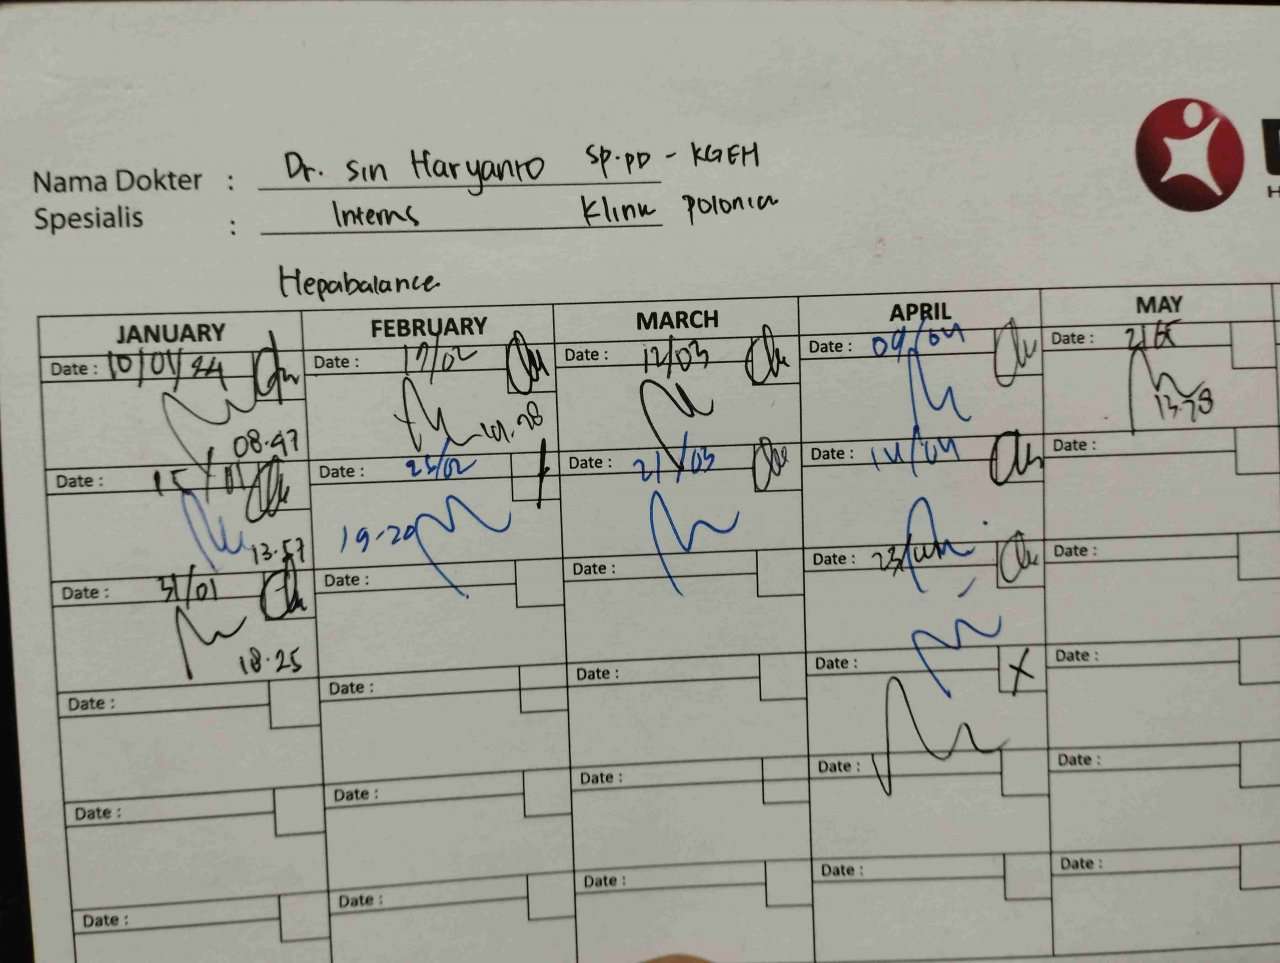 Nama Dokter : Dr. Sin Haryanto Sp.PD - KGEH
Spesialis : Interns Klink Polonia
Hepabalance
JANUARY FEBRUARY MARCH APRIL MAY
Date : 10/01/24 Date : 17/02 Date : 12/03 Date : 09/04 Date :
08.47 13.28
Date : 15/01 Date : 25/02 Date : 21/03 Date : 14/04 Date :
13.57 19-20
Date : 31/01 Date : Date : Date : 23/ Date :
18.25
Date : Date : Date : Date : Date :
Date : Date : Date : Date : Date :
Date : Date : Date : Date : Date :